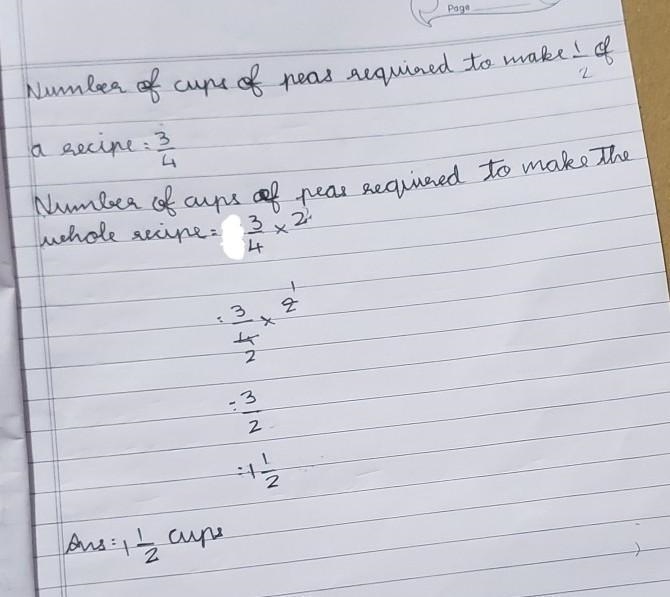 Page
Number of cups of peas required to make 1/2 of
a recipe = 3/4
Number of cups of peas required to make the
whole recipe = 3/4 × 2
= 3/4 × 2 1
2
= 3/2
= 1 1/2
Ans: 1 1/2 cups